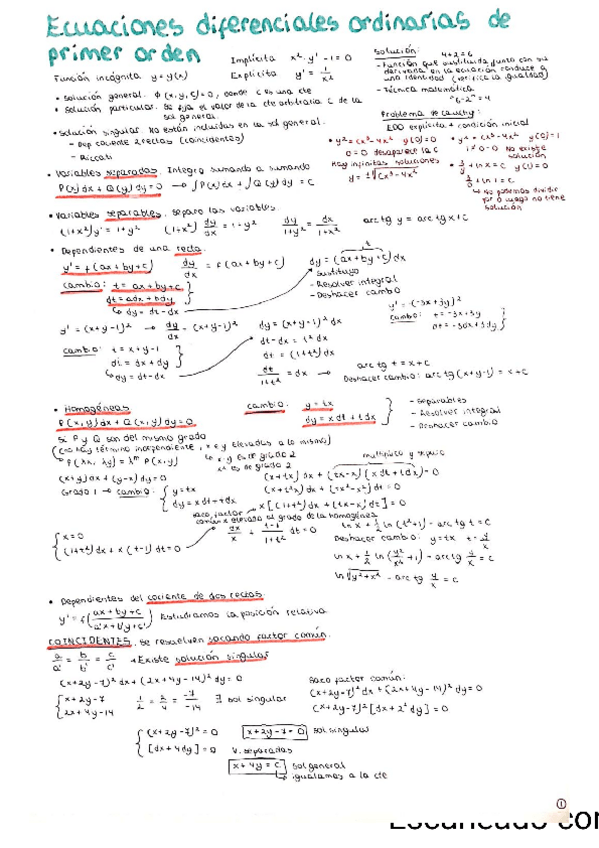 Ecuaciones diferenciales ordinarias de
primer orden
Implícita x²·y'-1=0
Función incógnita y=y(x)
Explícita y' = 1/x²
Solución: 4+2=6
-Función que sustituida junto con su
derivada en la ecuación conduce a
una identidad (verifica la igualdad)
-Técnica matemática
"6-2"=4
• Solución general. Φ(x,y,C)=0, donde C es una cte
• Solución particular. Se fija el valor de la cte arbitraria C de la
sol general.
• Solución singular. No están incluidas en la sol general.
- Dep cociente 2 rectas (coincidentes)
- Riccati
Problema de Cauchy:
EDO explícita + condición inicial
• y²=Cx³-4x² y(0)=0
0=0 desaparece la C
Hay infinitas soluciones
y=±√(Cx³-4x²)
• y²=Cx³-4x² y(0)=1
1≠0-0 No existe
solución
• y/x + ln x = C y(1)=0
↳ No podemos dividir
por 0 luego no tiene
solución
• Variables separadas. Integro sumando a sumando
P(x)dx+Q(y)dy=0 → ∫P(x)dx+∫Q(y)dy=C
• Variables separables. separo las variables.
(1+x²)y'=1+y² (1+x²) dy/dx = 1+y² dy/1+y² = dx/1+x² arctg y = arctg x + C
• Dependientes de una recta.
y'=f(ax+by+c) dy/dx = f(ax+by+c) dy=(ax+by+c)dx
cambio: t=ax+by+c
dt=adx+bdy
↳ dy=dt-dx
- Sustituyo
- Resolver integral
- Deshacer cambio
y'=(-3x+3y)²
cambio: t=-3x+3y
dt=-3dx+3dy
y'=(x+y-1)² → dy/dx = (x+y-1)² dy=(x+y-1)²dx
cambio: t=x+y-1
dt=dx+dy
↳ dy=dt-dx
dt-dx=t²dx
dt=(1+t²)dx
dt/1+t² = dx → arctg t = x+C
Deshacer cambio: arctg(x+y-1)=x+C
• Homogéneas
P(x,y)dx+Q(x,y)dy=0
cambio: y=tx
dy=xdt+tdx
- Separables
- Resolver integral
- Deshacer cambio
si P y Q son del mismo grado
(C=0 No hay término independiente, x e y elevadas a lo mismo)
↳ P(λx,λy)=λᵐP(x,y)
↳ x·y es de grado 2
x² es de grado 2
multiplico y agrupo
(x+y)dx+(y-x)dy=0
Grado 1 → cambio: y=tx
dy=xdt+tdx
(x+tx)dx+(tx-x)(xdt+tdx)=0
(x+t²x)dx+(tx²-x²)dt=0
x[(1+t²)dx+(tx-x)dt]=0
saco factor
común x elevada al grado de la homogénea
x=0
(1+t²)dx+x(t-1)dt=0
dx/x + t-1/1+t² dt=0
ln x + 1/2 ln(t²+1) - arctg t = C
Deshacer cambio: y=tx t=y/x
ln x + 1/2 ln(y²/x²+1) - arctg y/x = C
ln √(y²+x²) - arctg y/x = C
• Dependientes del cociente de dos rectas.
y'=f(ax+by+c/a'x+b'y+c') Estudiamos la posición relativa
COINCIDENTES. Se resuelven sacando factor común.
a/a' = b/b' = c/c' + Existe solución singular
(x+2y-7)²dx+(2x+4y-14)²dy=0
x+2y-7
2x+4y-14
1/2 = 2/4 = -7/-14 ∃ sol singular
saco factor común:
(x+2y-7)²dx+(2x+4y-14)²dy=0
(x+2y-7)²[dx+2²dy]=0
(x+2y-7)²=0 x+2y-7=0 sol singular
[dx+4dy]=0 V. separadas
x+4y=C sol general
↳ igualamos a la cte
①